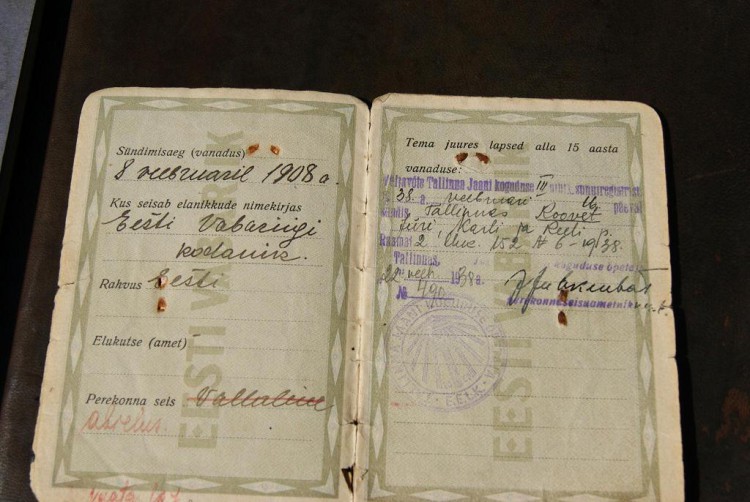 Sündimisaeg (vanadus)
8 veebruaril 1908 a.
Kus seisab elanikkude nimekirjas
Eesti Vabariigi
kodanik.
Rahvus Eesti
Elukutse (amet)
Perekonna seis Vallaline
abielus.
vaata
EESTI VABARIIK
Tema juures lapsed alla 15 aasta
vanaduse:
Väljavõte Tallinna Jaani koguduse III
38. a. veebruari 4 päeval
sündis Tallinnas Roovet
Jüri, Karli ja Reeli p.
Raamat 2 lhk. 152 № 6 - 1938.
Tallinnas, koguduse õpetaja
22 veebr. 1938 a.
№ 490
perekonnaseisuametnik
EESTI VABARIIK